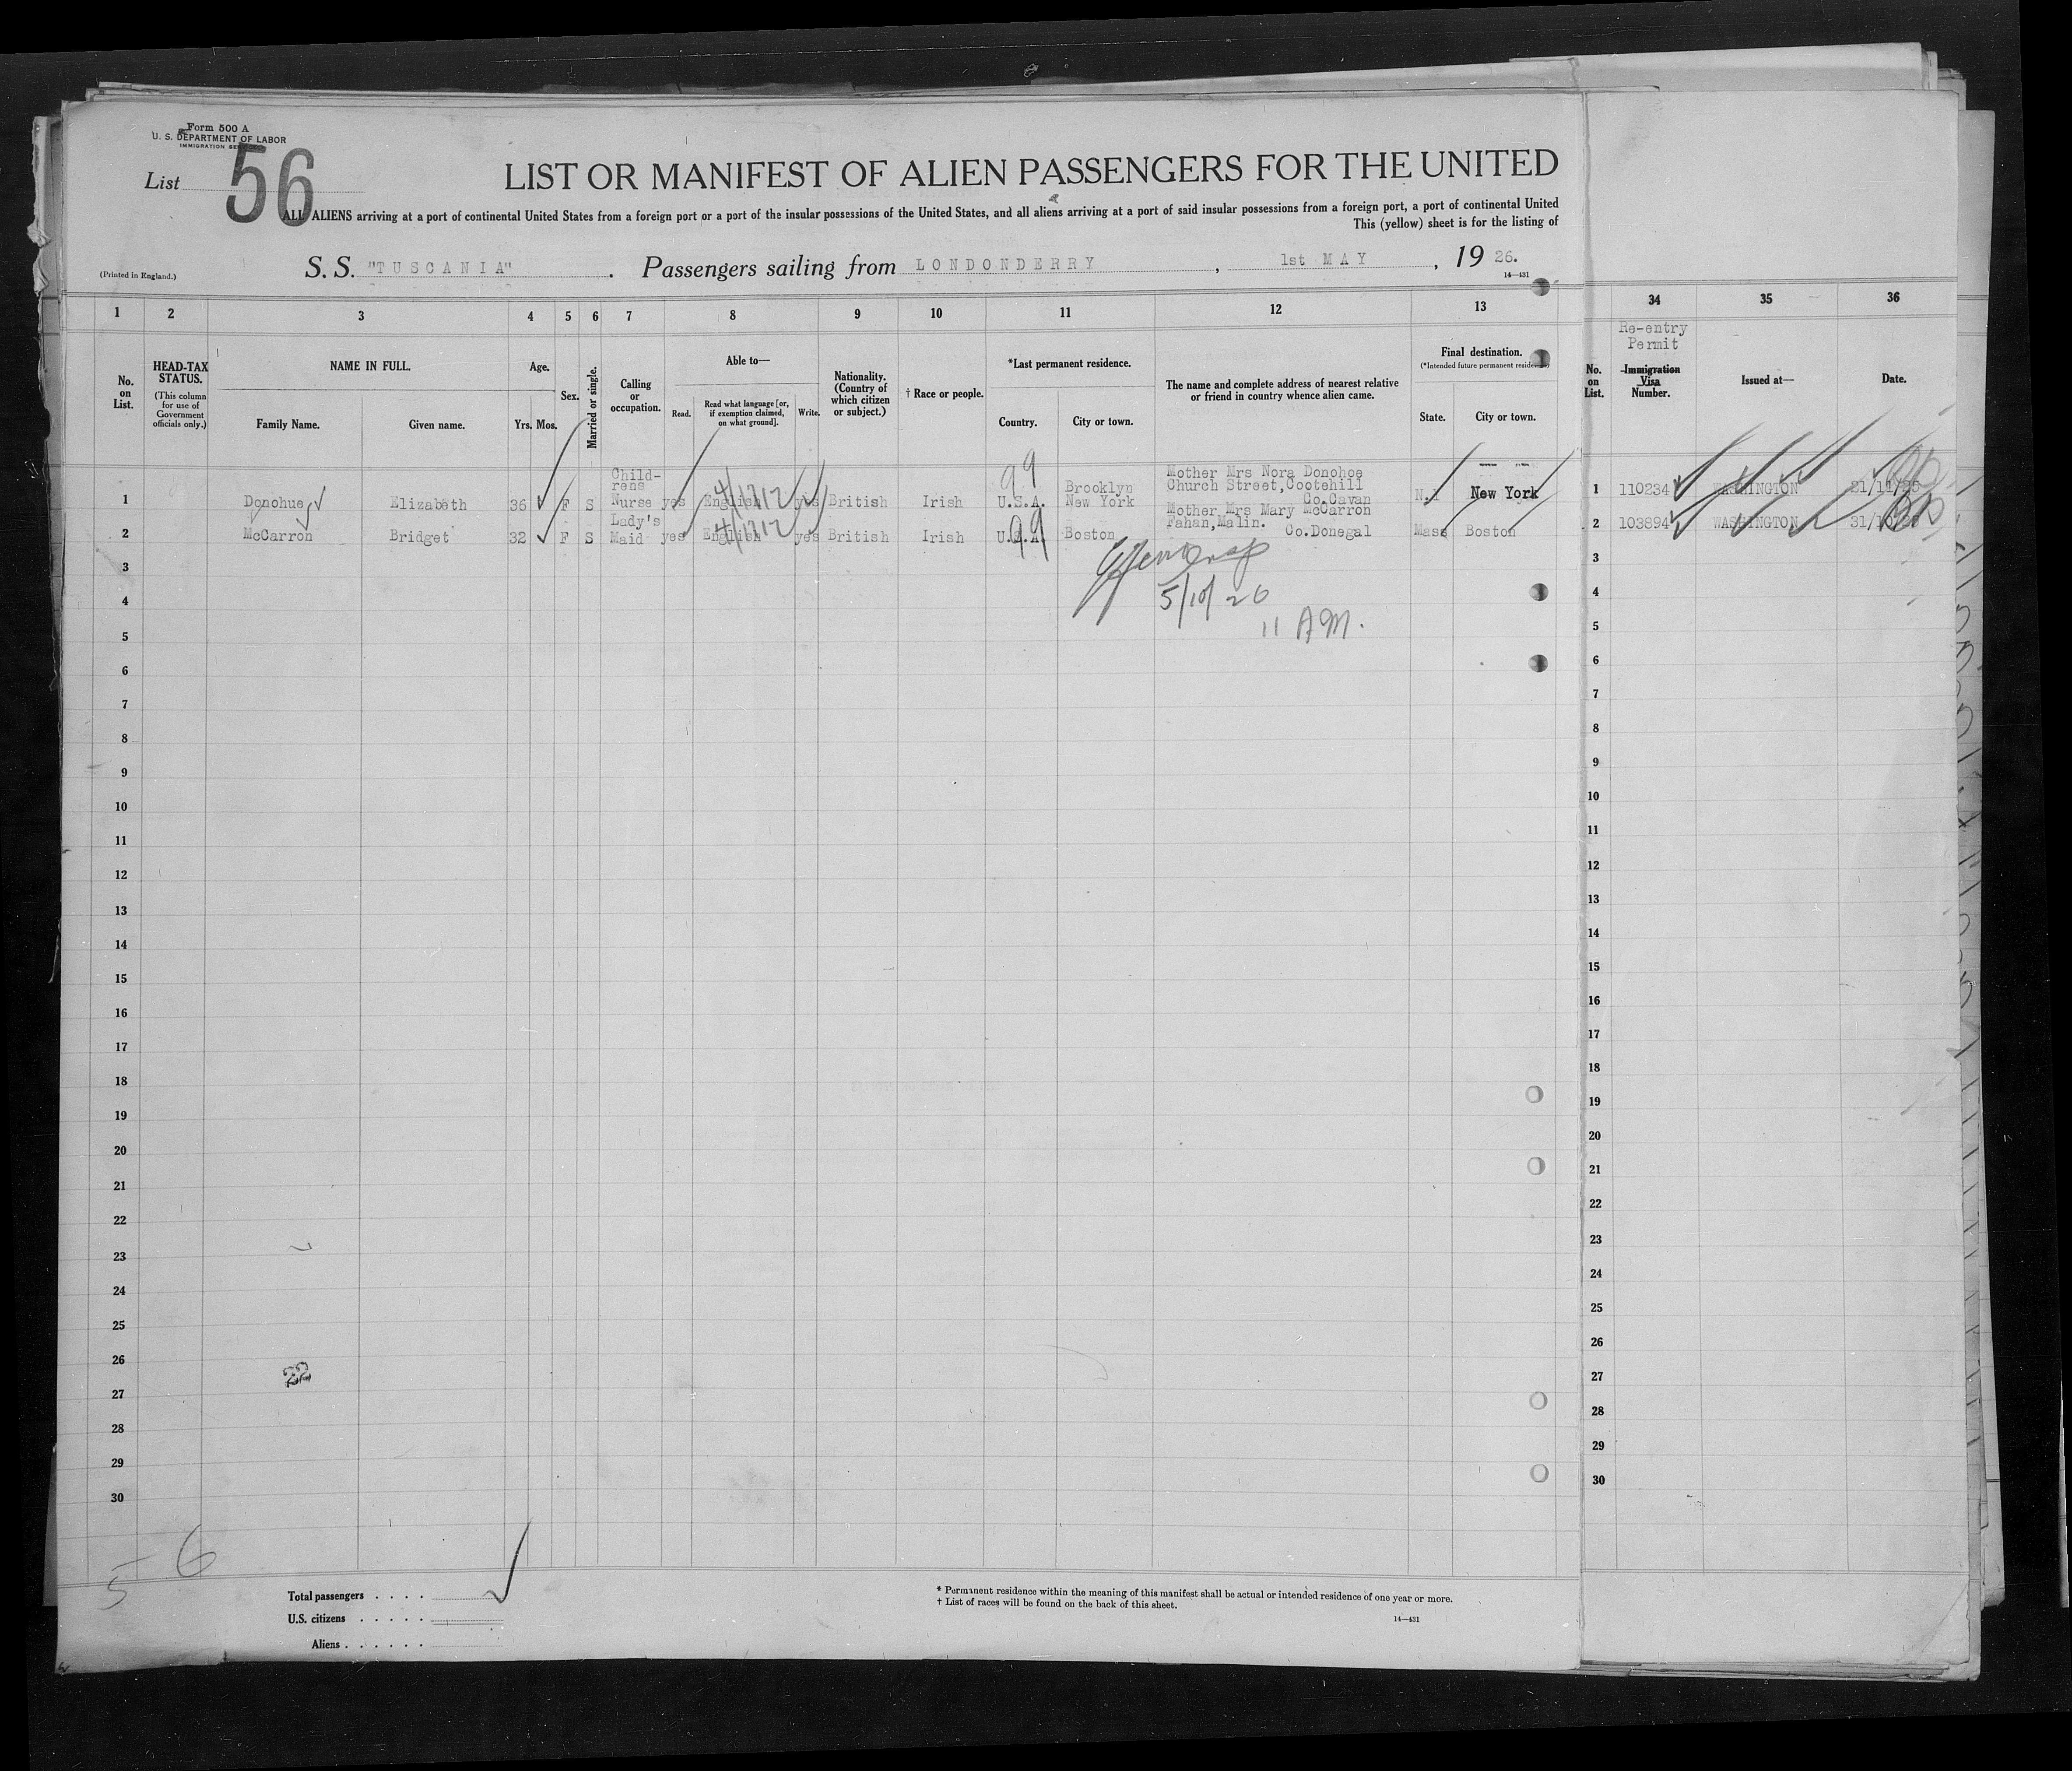 Form 500 A
U. S. DEPARTMENT OF LABOR
IMMIGRATION
List 56
LIST OR MANIFEST OF ALIEN PASSENGERS FOR THE UNITED
ALL ALIENS arriving at a port of continental United States from a foreign port or a port of the insular possessions of the United States, and all aliens arriving at a port of said insular possessions from a foreign port, a port of continental United
This (yellow) sheet is for the listing of
(Printed in England.)
S. S. "TUSCANIA" . Passengers sailing from LONDONDERRY , 1st MAY , 19 26.
14—431
1 2 3 4 5 6 7 8 9 10 11 12 13 34 35 36
No. on List.
HEAD-TAX STATUS.
(This column for use of Government officials only.)
NAME IN FULL.
Family Name. Given name.
Age.
Yrs. Mos.
Sex.
Married or single.
Calling or occupation.
Able to—
Read. Read what language [or, if exemption claimed, on what ground]. Write.
Nationality. (Country of which citizen or subject.)
† Race or people.
*Last permanent residence.
Country. City or town.
The name and complete address of nearest relative or friend in country whence alien came.
Final destination.
(*Intended future permanent residence)
State. City or town.
No. on List.
Re-entry Permit
Immigration Visa Number.
Issued at—
Date.
1 Donohue Elizabeth 36 F S Child-rens Nurse yes English yes British Irish U.S.A. Brooklyn New York Mother Mrs Nora Donohoe Church Street,Cootehill Co.Cavan New York 1 110234 WASHINGTON
2 McCarron Bridget 32 F S Lady's Maid yes English yes British Irish U.S.A. Boston Mother Mrs Mary McCarron Fahan,Malin. Co.Donegal Mass Boston 2 103894 WASHINGTON
99
4/1712
99
4/1712
5/10/26
11 AM.
3 3
4 4
5 5
6 6
7 7
8 8
9 9
10 10
11 11
12 12
13 13
14 14
15 15
16 16
17 17
18 18
19 19
20 20
21 21
22 22
23 23
24 24
25 25
26 26
22
27 27
28 28
29 29
30 30
5 6
Total passengers . . . .
U.S. citizens . . . . .
Aliens . . . . . .
* Permanent residence within the meaning of this manifest shall be actual or intended residence of one year or more.
† List of races will be found on the back of this sheet.
14—431